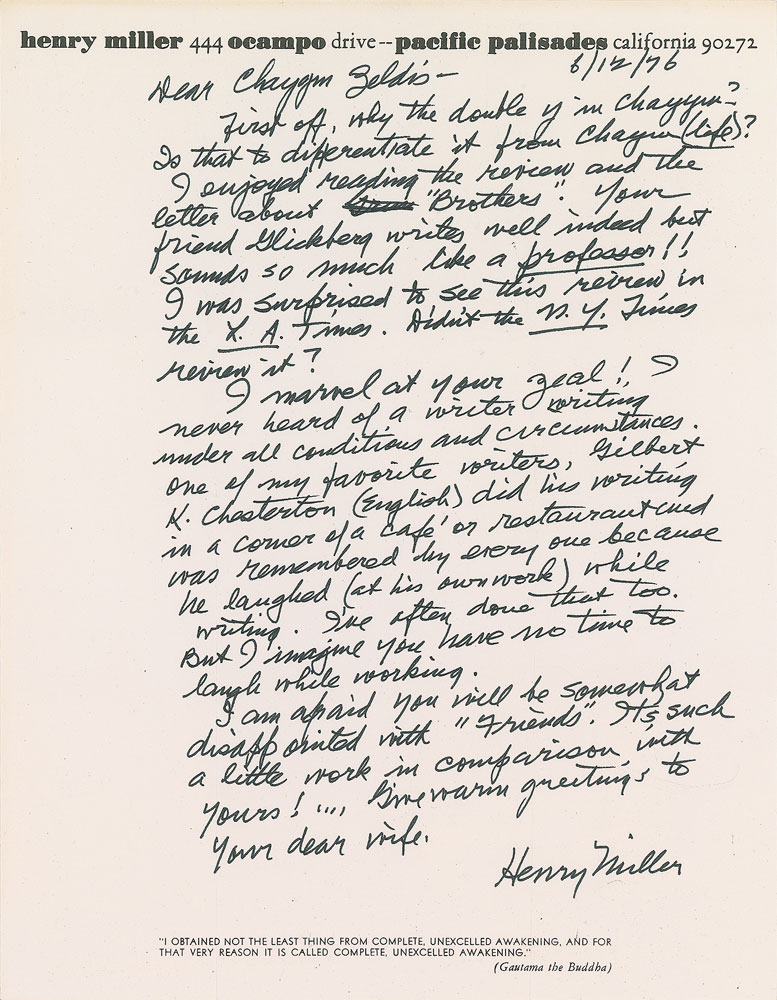 henry miller 444 ocampo drive--pacific palisades california 90272
6/12/76
Dear Chaym Zeldis—
First off, why the double y in Chayym?
Is that to differentiate it from Chaym (life)?
I enjoyed reading the review and the
letter about "Brothers". Your
friend Glickberg writes well indeed but
sounds so much like a professor!!
I was surprised to see this review in
the L. A. Times. Didn't the N. Y. Times
review it?
I marvel at your zeal! I
never heard of a writer writing
under all conditions and circumstances.
One of my favorite writers, Gilbert
K. Chesterton (English) did his writing
in a corner of a café or restaurant and
was remembered by every one because
he laughed (at his own work) while
writing. I've often done that too.
But I imagine you have no time to
laugh while working.
I am afraid you will be somewhat
disappointed with "Friends". It's such
a little work in comparison with
yours! .... Give warm greetings to
your dear wife.
Henry Miller
"I OBTAINED NOT THE LEAST THING FROM COMPLETE, UNEXCELLED AWAKENING, AND FOR
THAT VERY REASON IT IS CALLED COMPLETE, UNEXCELLED AWAKENING."
(Gautama the Buddha)